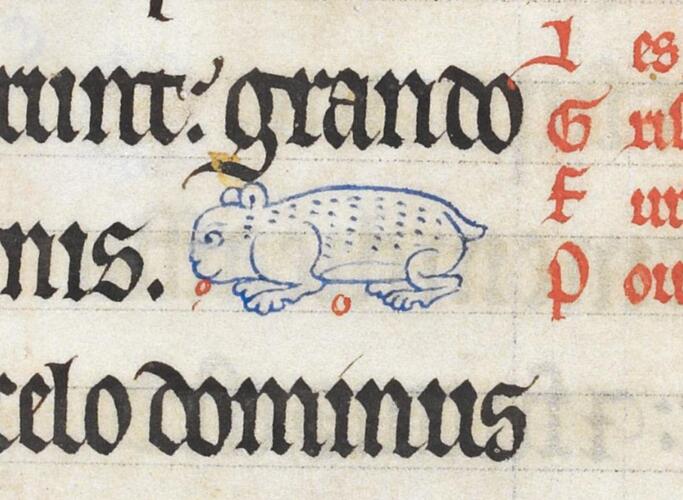 runt: grando
nis.
celo dominus
I es
G
F ur
P ou